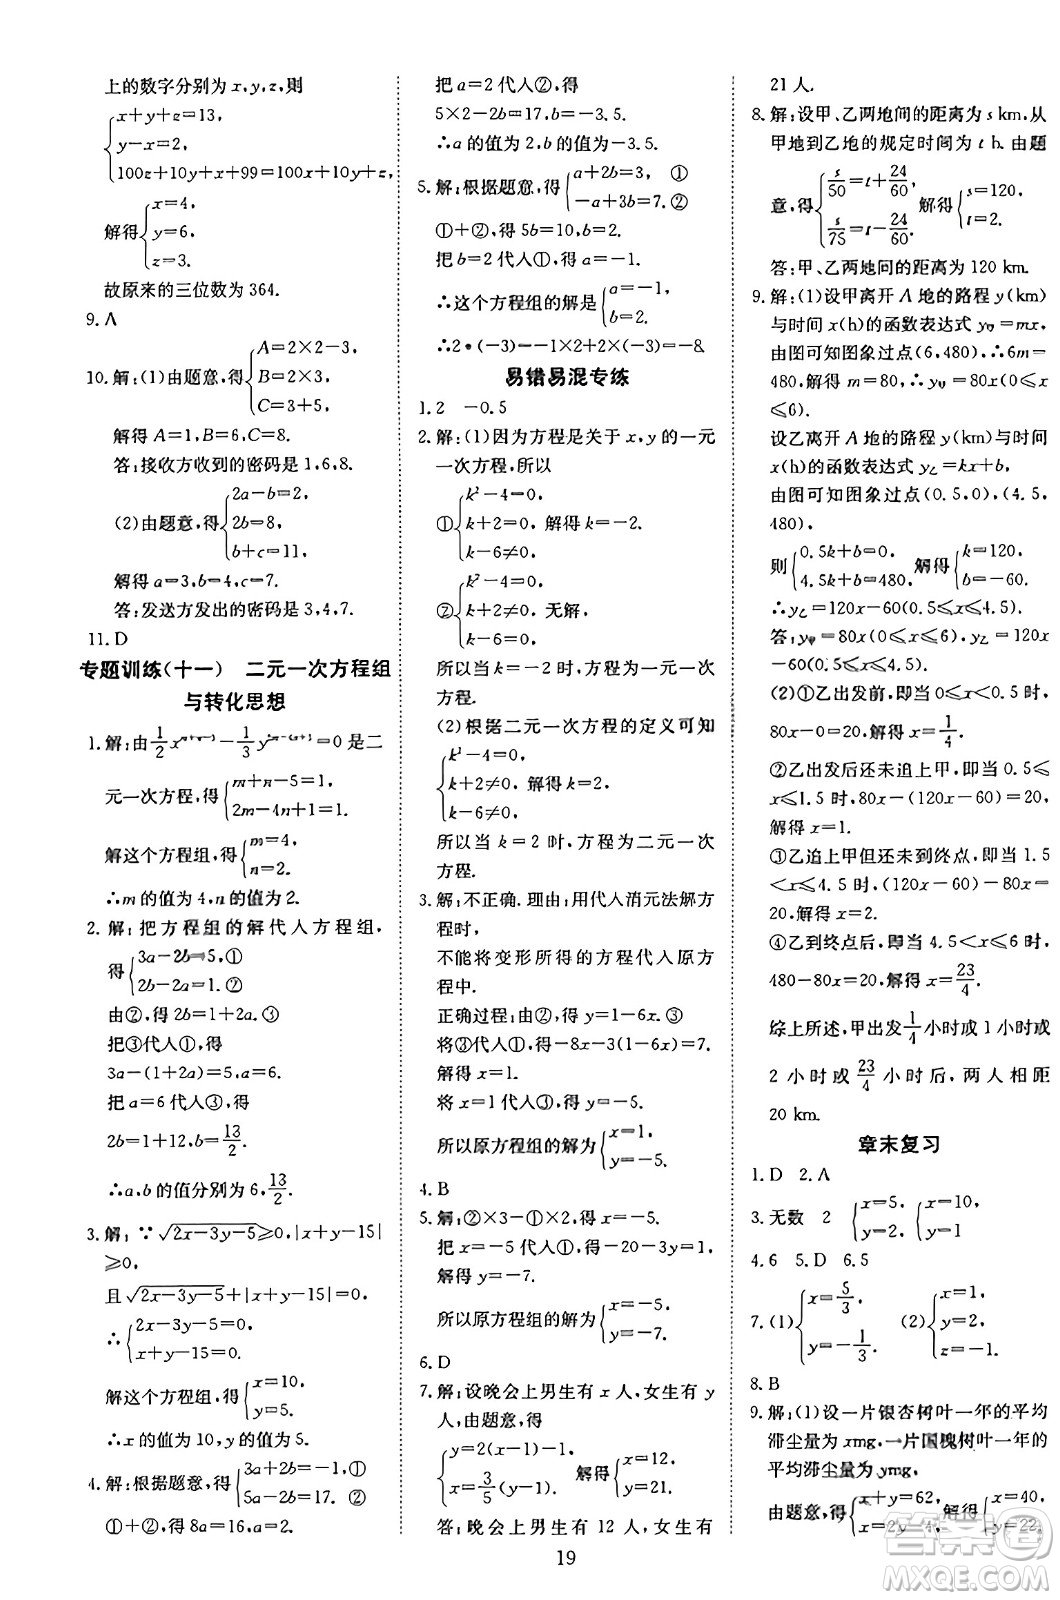 上的数字分别为 x,y,z,则
x+y+z=13,
y-x=2,
100z+10y+x+99=100x+10y+z,
解得 x=4,
y=6,
z=3.
故原来的三位数为 364.
9. A
10. 解:(1)由题意,得 A=2×2-3,
B=2×3,
C=3+5.
解得 A=1,B=6,C=8.
答:接收方收到的密码是 1,6,8.
(2)由题意,得 2a-b=2,
2b=8,
b+c=11,
解得 a=3,b=4,c=7.
答:发送方发出的密码是 3,4,7.
11. D
专题训练(十一) 二元一次方程组
与转化思想
是二
元一次方程,得 m+n-5=1,
2m-4n+1=1.
解这个方程组,得 m=4,
n=2.
∴m 的值为 4,n 的值为 2.
2. 解:把方程组的解代人方程组,
得 3a-2b=5,①
2b-2a=1.②
由②,得 2b=1+2a.③
把③代人①,得
3a-(1+2a)=5.解得 a=6.
把 a=6 代人③,得
2b=1+12,b=13/2.
∴a,b 的值分别为 6,13/2.
3. 解:∵√(2x-3y-5)≥0,|x+y-15|
≥0,
且√(2x-3y-5)+|x+y-15|=0,
∴ 2x-3y-5=0,
x+y-15=0.
解这个方程组,得 x=10,
y=5.
∴x 的值为 10,y 的值为 5.
4. 解:根据题意,得 3a+2b=-1,①
5a-2b=17.②
①+②,得 8a=16,a=2.
把 a=2 代人②,得
5×2-2b=17,b=-3.5.
∴a 的值为 2,b 的值为-3.5.
5. 解:根据题意,得 a+2b=3, ①
-a+3b=7.②
①+②,得 5b=10,b=2.
把 b=2 代人①,得 a=-1.
∴这个方程组的解是 a=-1,
b=2.
∴2*(-3)=-1×2+2×(-3)=-8.
易错易混专练
1. 2 -0.5
2. 解:(1)因为方程是关于 x,y 的一元
一次方程,所以
① k²-4=0,
k+2=0, 解得 k=-2.
k-6≠0,
② k²-4=0,
k+2≠0, 无解,
k-6=0,
所以当 k=-2 时,方程为一元一次
方程.
(2)根据二元一次方程的定义可知
k²-4=0,
k+2≠0, 解得 k=2.
k-6≠0,
所以当 k=2 时,方程为二元一次
方程.
3. 解:不正确.理由:用代人消元法解方
程时,
不能将变形所得的方程代人原方
程中.
正确过程:由②,得 y=1-6x.③
将③代人①,得-8x-3(1-6x)=7.
解得 x=1.
将 x=1 代人③,得 y=-5.
所以原方程组的解为 x=1,
y=-5.
4. B
5. 解:②×3-①×2,得 x=-5.
把 x=-5 代人①,得-20-3y
=1.解得 y=-7.
所以原方程组的解为 x=-5,
y=-7.
6. D
7. 解:设晚会上男生有 x 人,女生有 y
人,由题意,得
y=2(x-1)-1,
x=3/5(y-1). 解得 x=12,
y=21.
答:晚会上男生有 12 人,女生有
21 人.
8. 解:设甲、乙两地间的距离为 s km,从
甲地到乙地的规定时间为 t h.由题
意,得 s/50=t+24/60,
s/75=t-24/60. 解得 s=120,
t=2.
答:甲、乙两地间的距离为 120 km.
9. 解:(1)设甲离开 A 地的路程 y(km)
与时间 x(h)的函数表达式 y甲=mx,
由图可知图象过点(6,480),∴6m=
480.解得 m=80,∴y甲=80x(0≤x
≤6).
设乙离开 A 地的路程 y(km)与时间
x(h)的函数表达式 y乙=kx+b,
由图可知图象过点(0.5,0),(4.5,
480),
则 0.5k+b=0,
4.5k+b=480, 解得 k=120,
b=-60.
∴y乙=120x-60(0.5≤x≤4.5).
答:y甲=80x(0≤x≤6),y乙=120x
-60(0.5≤x≤4.5).
(2)①乙出发前,即当 0≤x<0.5 时,
80x-0=20,解得 x=1/4.
②乙出发后还未追上甲,即当 0.5≤
x≤1.5 时,80x-(120x-60)=20,
解得 x=1.
③乙追上甲但还未到终点,即当 1.5
<x≤4.5 时,(120x-60)-80x=
20.解得 x=2.
④乙到终点后,即当 4.5<x≤6 时,
480-80x=20,解得 x=23/4.
综上所述,甲出发 1/4 小时或 1 小时或
2 小时或 23/4 小时后,两人相距
20 km.
章末复习
1. D 2. A
3. 无数 2 x=5, y=1, x=10,
4. 6 5. D 6. 5
7. (1) x=5/3,
y=-1/3. (2) x=1,
y=2,
z=-1.
8. B
9. 解:(1)设一片银杏树叶一年的平均
滞尘量为 xmg,一片国槐树叶一年的
平均滞尘量为 ymg,
由题意,得 x+y=62,
x=2y-4, 解得 x=40,
y=22.
19
答案圈
MXQE.COM